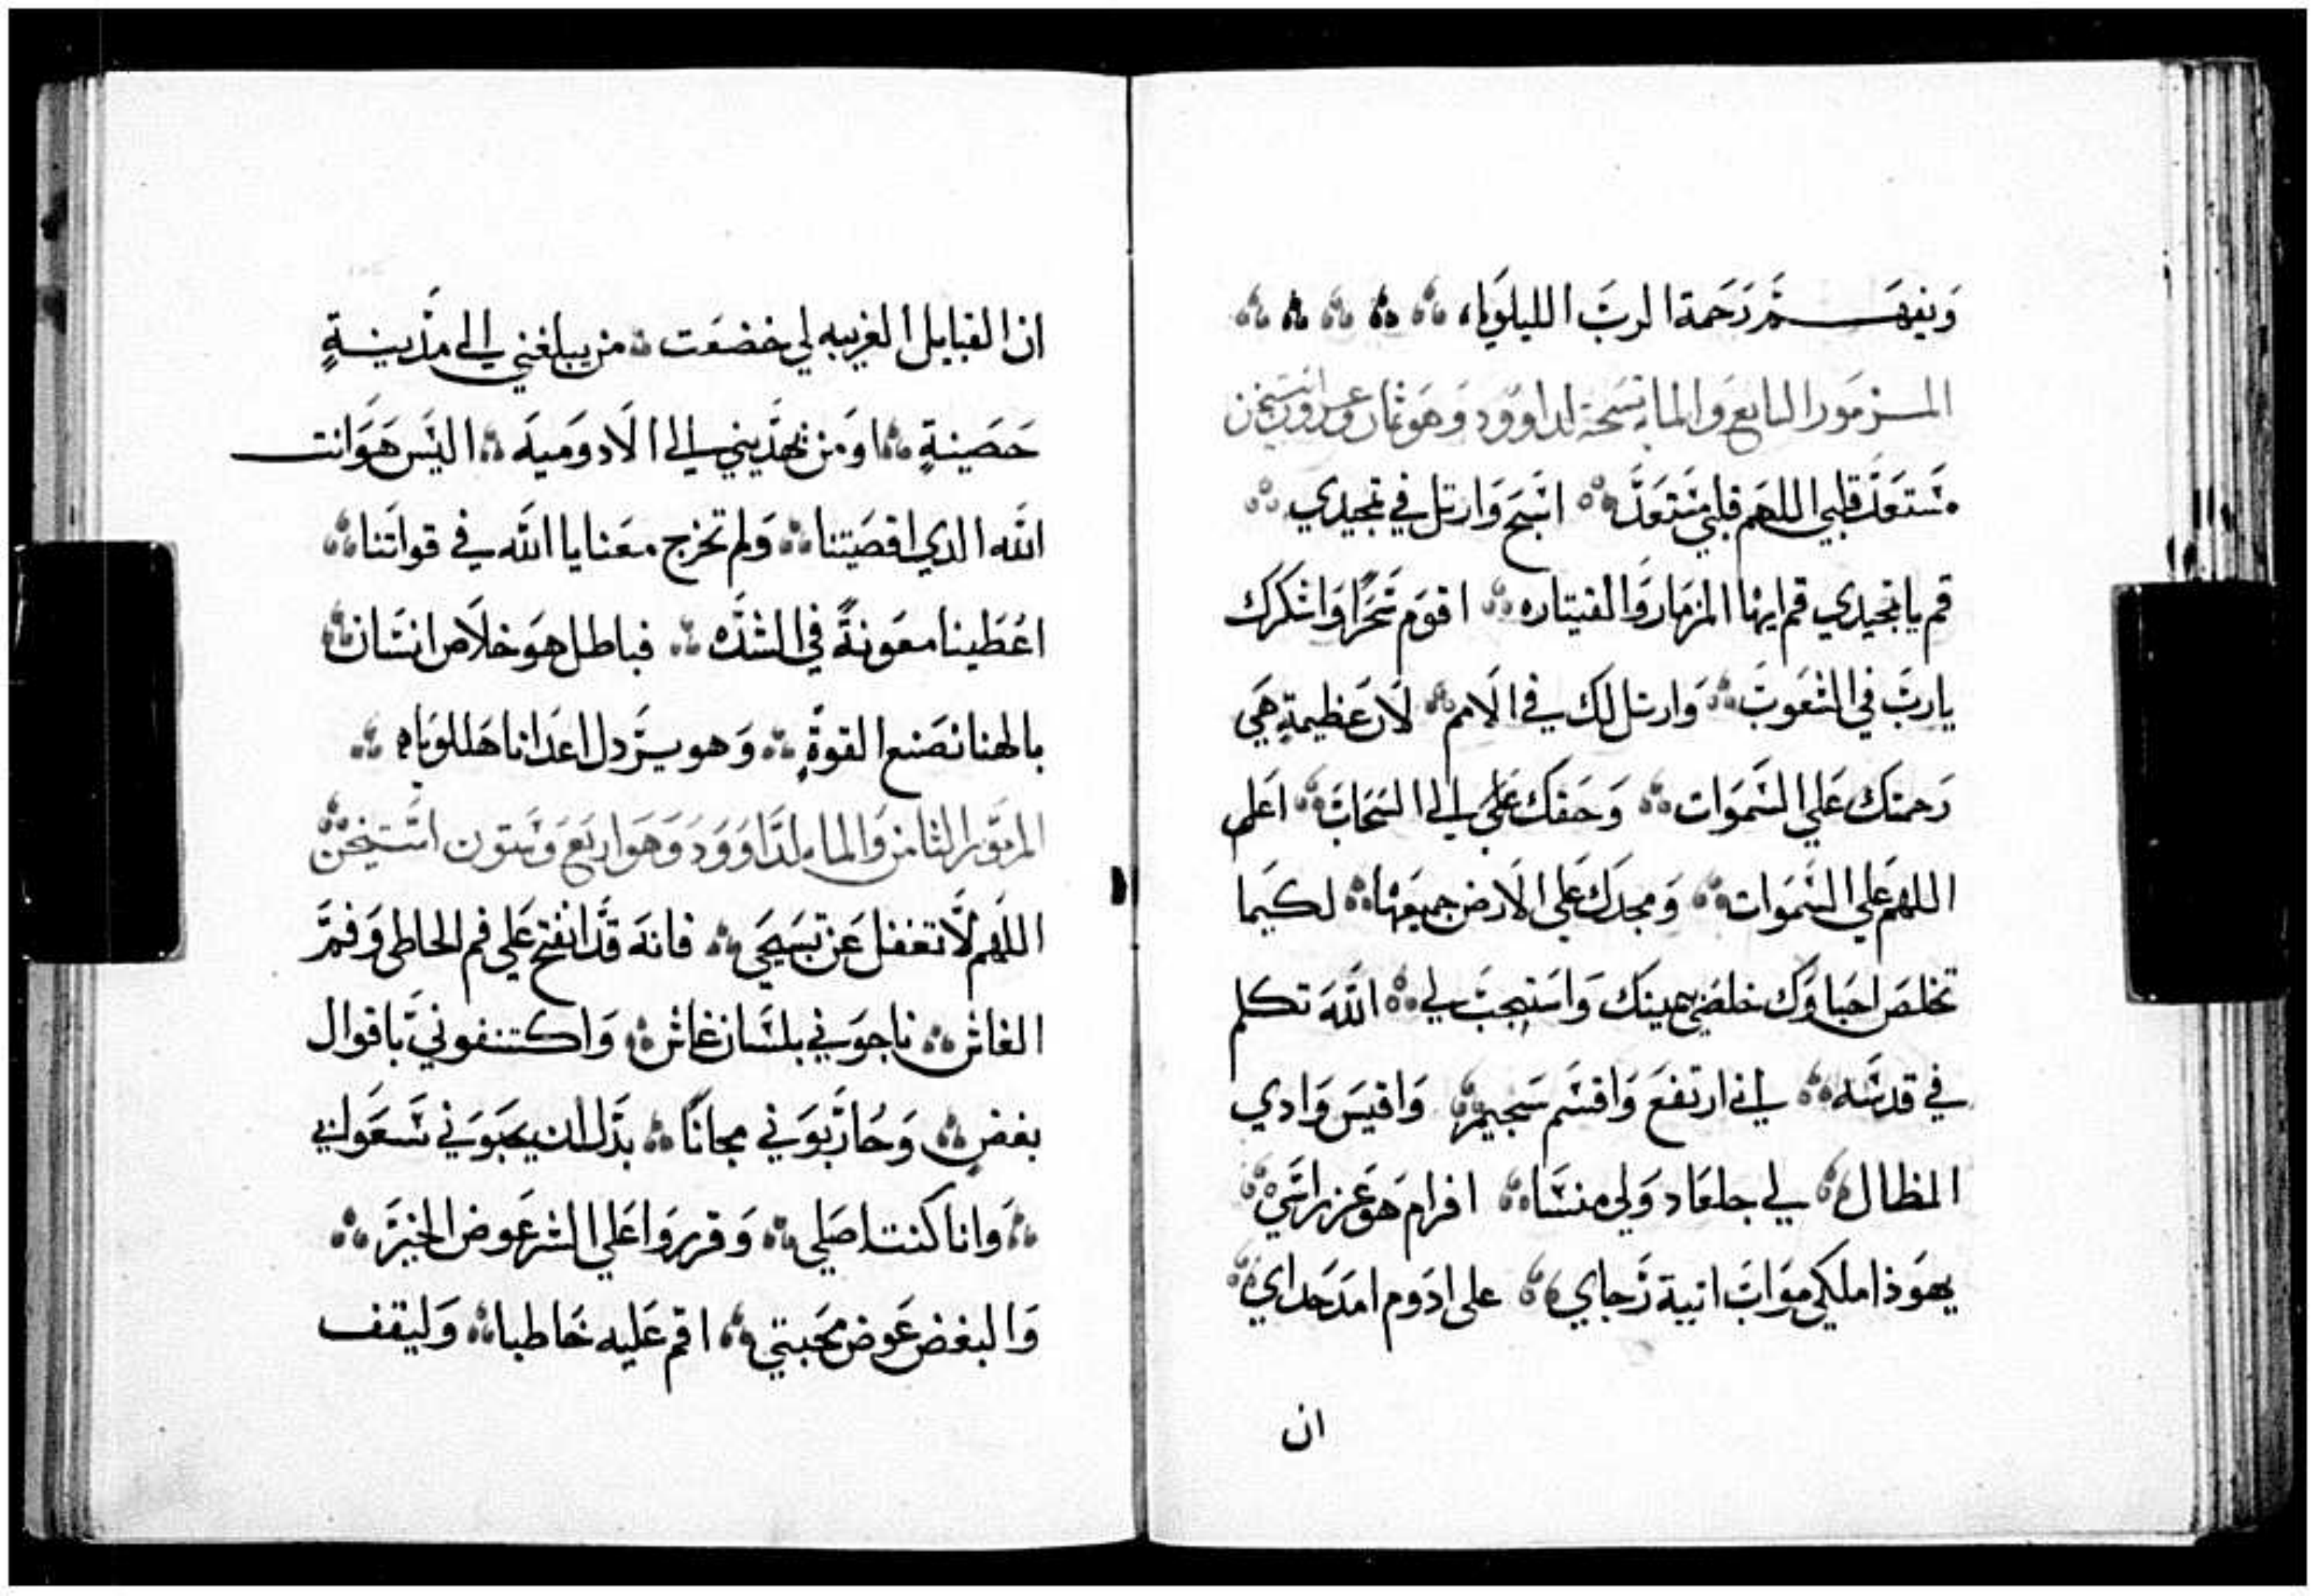 وَيفهَـــم رَحَمة الربَ الليلَويا،
المــزمَور السابع وَالمايه تسَبحة لداوود وَهَو ثمان وعشرون استيخن
مسَّتعَدٌ قلبي اللهَم قلبي مستعَدٌ اسَبح وَارتل في تمجيدي
قم يا تمجيدي قم ايها المزمَار وَالقيتاره اقوَم سَحَرًا وَاشكرَك
يا ربَ في الشعَوبَ وَارتل لك في الَامم لَان عَظيمةٍ هَي
رَحمتك عَلي السَّموَات وَحَقك عَلَي الي السَحَابَ اعَلي
اللهَم عَلي السَّموَات وَمجدَك عَلي الَارض جميعَها لكيَما
تخلصَ احَباوَك خلصَني بيمينَك وَاسَتجبَ لي اللهَ تكلم
في قدسَه اني ارتفعَ وَاقسَم سَجيم وَاقيسَ وَادي
المظال لي جلعَاد وَلي منسَّا افرام هَو عَز راسَي
يهَوَذا ملكي موَابَ انية رَجاي علي ادوَم امدَ حَداي
ان
ان القبايل الغريبه لي خضعَت من يبلغني الي مدَينــةٍ
حَصَينةٍ اوَ من يهدَيني الي الَادوَميَه اليَس هَوَ انت
الله الدي اقصَيتنا وَلم تخرج معَنا يا الله في قواتَنا
اعَطَينا معَونةً في الشدَه فباطل هَو خلاَص انسَان
بالهنا نصَنع القوةٍ وَهو يــرَدل اعدَانا هَللوَيا،
المزمَور الثامن وَالمايه لدَاوَوَد وَهَو اربَع وَسَتون استَيخن
اللهَم لَا تغفل عَن تسَبحَي فانهَ قَد انفتح عَلي فم الخاطي وَفم
الغاش ناجوَني بلسَان غاش وَاكتنفونيَ باقوال
بغضٍ وَحَاربَوَني مجانًا بدَل ان يحَبوَني سَــعَوا بي
وَانا كنت اصَلي وَقرروَا عَلي الشر عَوض الخيرَ
وَالبغض عَوض محَبتي اقم عَليه خَاطيا وَليقف